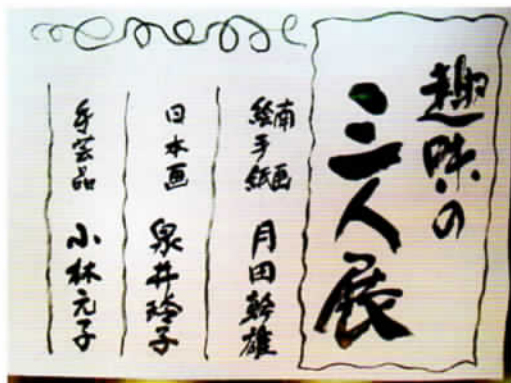 趣味の
三人展
南画
絵手紙
月田幹雄
日本画
泉井玲子
手芸品
小林元子